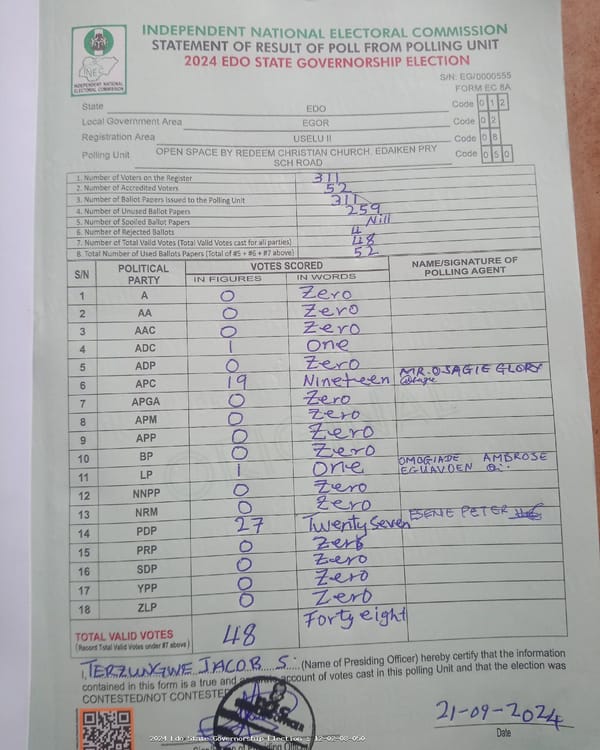 INDEPENDENT NATIONAL ELECTORAL COMMISSION
STATEMENT OF RESULT OF POLL FROM POLLING UNIT
2024 EDO STATE GOVERNORSHIP ELECTION
INEC
INDEPENDENT NATIONAL ELECTORAL COMMISSION
S/N: EG/0000555
FORM EC 8A
State EDO Code 0 1 2
Local Government Area EGOR Code 0 2
Registration Area USELU II Code 0 8
Polling Unit OPEN SPACE BY REDEEM CHRISTIAN CHURCH, EDAIKEN PRY SCH ROAD Code 0 5 0
1. Number of Voters on the Register 311
2. Number of Accredited Voters 52
3. Number of Ballot Papers Issued to the Polling Unit 311
4. Number of Unused Ballot Papers 259
5. Number of Spoiled Ballot Papers Nill
6. Number of Rejected Ballots 4
7. Number of Total Valid Votes (Total Valid Votes cast for all parties) 48
8. Total Number of Used Ballots Papers (Total of #5 + #6 + #7 above) 52
S/N POLITICAL PARTY VOTES SCORED IN FIGURES IN WORDS NAME/SIGNATURE OF POLLING AGENT
1 A 0 Zero
2 AA 0 Zero
3 AAC 0 Zero
4 ADC 1 One
5 ADP 0 Zero
6 APC 19 Nineteen MR. OSAGIE GLORY
7 APGA 0 Zero
8 APM 0 Zero
9 APP 0 Zero
10 BP 0 Zero
11 LP 1 One OMOGIADE AMBROSE EGUAVOEN
12 NNPP 0 Zero
13 NRM 0 Zero
14 PDP 27 Twenty Seven ESENE PETER
15 PRP 0 Zero
16 SDP 0 Zero
17 YPP 0 Zero
18 ZLP 0 Zero
TOTAL VALID VOTES 48 Forty eight
(Record Total Valid Votes under #7 above)
I, TERZUNGWE JACOB S. (Name of Presiding Officer) hereby certify that the information
contained in this form is a true and account of votes cast in this polling Unit and that the election was
CONTESTED/NOT CONTESTED
21-09-2024
Date
2024 Edo State Governorship Election - 12-02-08-050